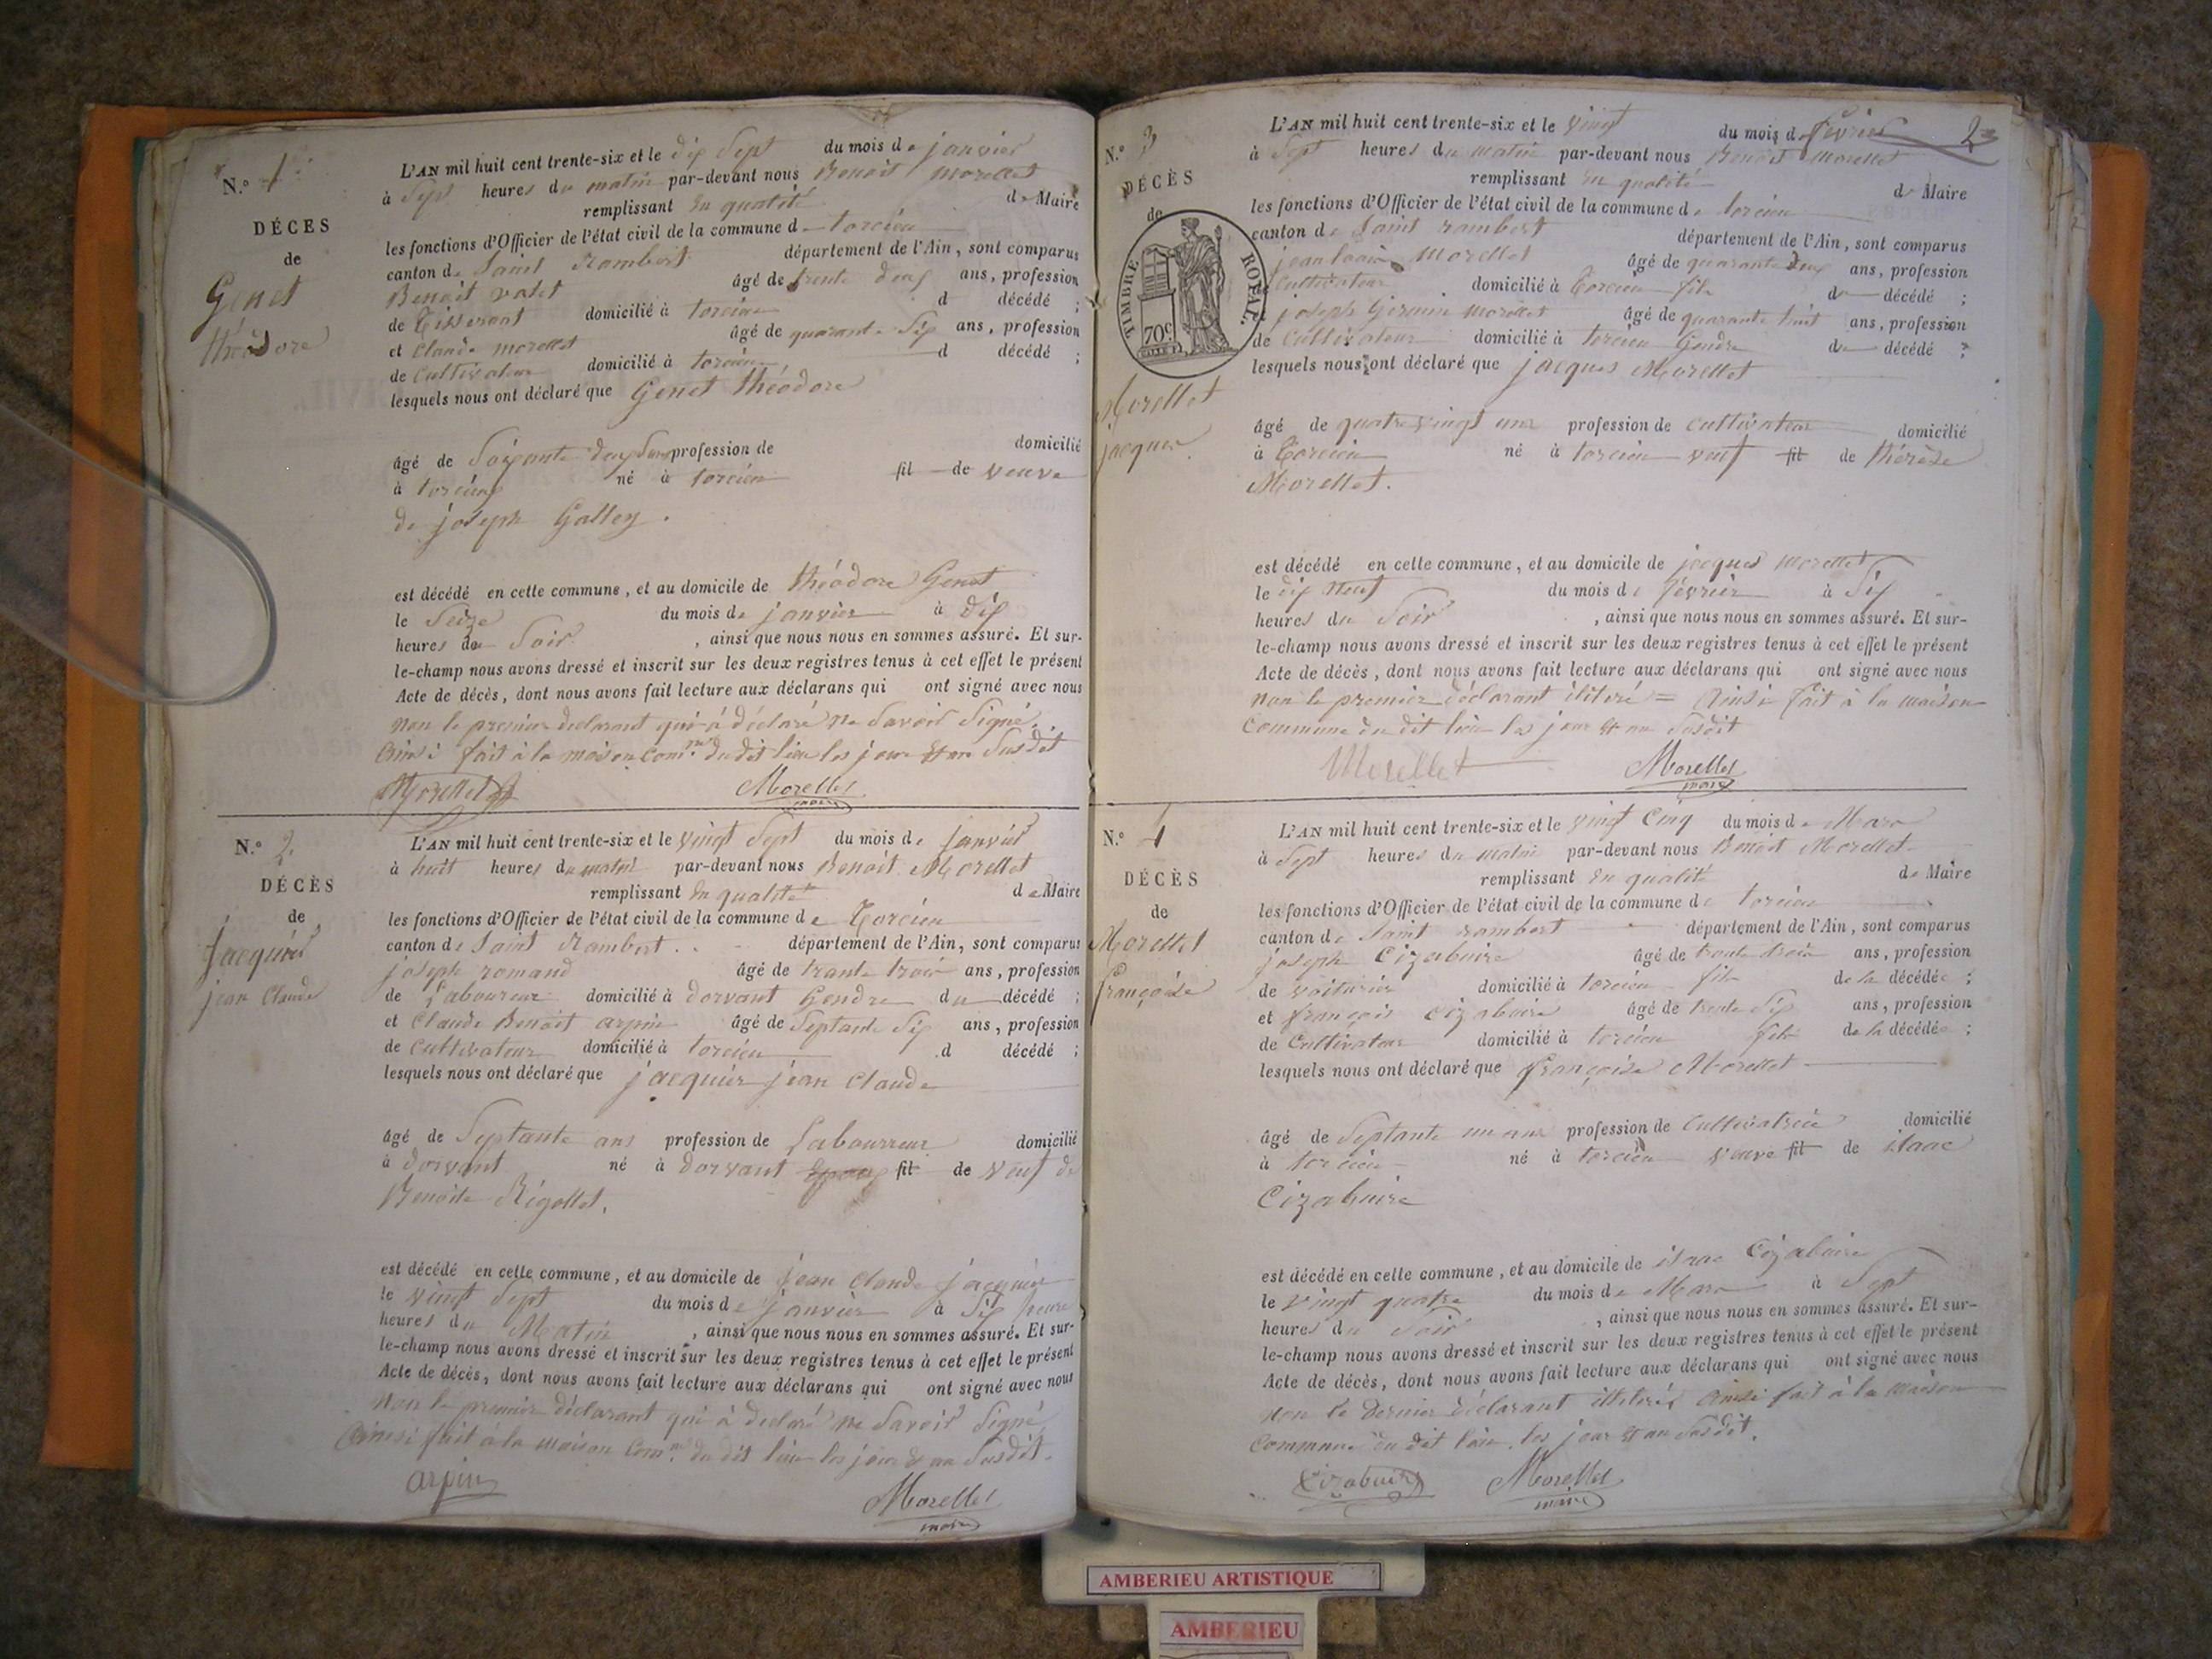 N.º 1
DÉCES
de
Genet
théodore
L'AN mil huit cent trente-six et le dix Sept du mois de janvier
à Sept heures du matin par-devant nous Benoit morellet
remplissant en qualité de Maire
les fonctions d'Officier de l'état civil de la commune de torcieu
canton de Saint Rambert département de l'Ain, sont comparus
Benoit valet âgé de trente deux ans, profession
de Tisserant domicilié à torcieu d décédé ;
et Claude morellet âgé de quarante Six ans, profession
de Cultivateur domicilié à torcieu d décédé ;
lesquels nous ont déclaré que Genet théodore
âgé de Soixante deux ans profession de domicilié
à torcieu né à torcieu fil de veuve
de joseph Galley.
est décédé en cette commune, et au domicile de théodore Genet
le Seize du mois de janvier à dix
heures du Soir, ainsi que nous nous en sommes assuré. Et sur-
le-champ nous avons dressé et inscrit sur les deux registres tenus à cet effet le présent
Acte de décès, dont nous avons fait lecture aux déclarans qui ont signé avec nous
non le premier declarant qui à déclaré ne Savoir Signé.
Ainsi fait à la maison com.ne du dit lieu les jour et an Susdit
Morellet Morellet
maire
N.º 2
DÉCÈS
de
Jacquier
jean Claude
L'AN mil huit cent trente-six et le vingt Sept du mois de Janvier
à huit heures du matin par-devant nous Benoit Morellet
remplissant en qualité de Maire
les fonctions d'Officier de l'état civil de la commune de Torcieu
canton de Saint Rambert département de l'Ain, sont comparus
joseph romand âgé de trante trois ans, profession
de Laboureur domicilié à dorvant Gendre du décédé ;
et Claude Benoit arpin âgé de Septante Six ans, profession
de Cultivateur domicilié à torcieu d décédé ;
lesquels nous ont déclaré que jacquier jean Claude
âgé de Septante ans profession de Labourreur domicilié
à dorvant né à dorvant Epoux fil de veuf de
Benoite Rigollet.
est décédé en cette commune, et au domicile de jean Claude jacquier
le vingt Sept du mois de janvier à Six heure
heures du Matin, ainsi que nous nous en sommes assuré. Et sur-
le-champ nous avons dressé et inscrit sur les deux registres tenus à cet effet le présent
Acte de décès, dont nous avons fait lecture aux déclarans qui ont signé avec nous
non le premier déclarant qui à declaré ne Savoir Signé
Ainsi fait à la maison Com.ne du dit lieu les jour & an Susdit.
arpin Morellet
maire
2
N.º 3
DÉCÈS
de
TIMBRE ROYAL.
70c.
Morellet
jacques.
L'AN mil huit cent trente-six et le vingt du mois de février
à Sept heures du matin par-devant nous Benoit Morellet
remplissant en qualité de Maire
les fonctions d'Officier de l'état civil de la commune de torcieu
canton de Saint rambert département de l'Ain, sont comparus
jean louis Morellet âgé de quarante deux ans, profession
Cultivateur domicilié à Torcieu fils du décédé ;
joseph Morellet âgé de quarante huit ans, profession
de Cultivateur domicilié à torcieu Gendre du décédé ;
lesquels nous ont déclaré que jacques Morellet
âgé de quatre vingt un profession de cultivateur domicilié
à Torcieu né à torcieu veuf fil de thérèse
Morellet.
est décédé en cette commune, et au domicile de jacques Morellet
le dix neuf du mois de février à Six
heures du Soir, ainsi que nous nous en sommes assuré. Et sur-
le-champ nous avons dressé et inscrit sur les deux registres tenus à cet effet le présent
Acte de décès, dont nous avons fait lecture aux déclarans qui ont signé avec nous
non le premier déclarant = Ainsi fait à la maison
commune du dit lieu les jour et an Susdit
Morellet Morellet
maire
N.º 4
DÉCÈS
de
Morellet
françoise
L'AN mil huit cent trente-six et le vingt Cinq du mois de Mars
à Sept heures du matin par-devant nous Benoit Morellet
remplissant en qualité de Maire
les fonctions d'Officier de l'état civil de la commune de torcieu
canton de Saint rambert département de l'Ain, sont comparus
joseph Cizabuire âgé de trente trois ans, profession
de voiturier domicilié à torcieu fils de la décédée ;
et françois cizabuire âgé de trente Six ans, profession
de Cultivateur domicilié à torcieu fils de la décédée ;
lesquels nous ont déclaré que françoise Morellet
âgé de Septante un ans profession de Cultivatrice domicilié
à torcieu né à torcieu veuve fil de isaac
Cizabuire
est décédé en cette commune, et au domicile de isaac Cizabuire
le vingt quatre du mois de Mars à Sept
heures du Soir, ainsi que nous nous en sommes assuré. Et sur-
le-champ nous avons dressé et inscrit sur les deux registres tenus à cet effet le présent
Acte de décès, dont nous avons fait lecture aux déclarans qui ont signé avec nous
non le Dernier déclarant Ainsi fait à la maison
commune du dit lieu, les jour et an Susdit.
Cizabuire Morellet
maire
AMBERIEU ARTISTIQUE
AMBERIEU